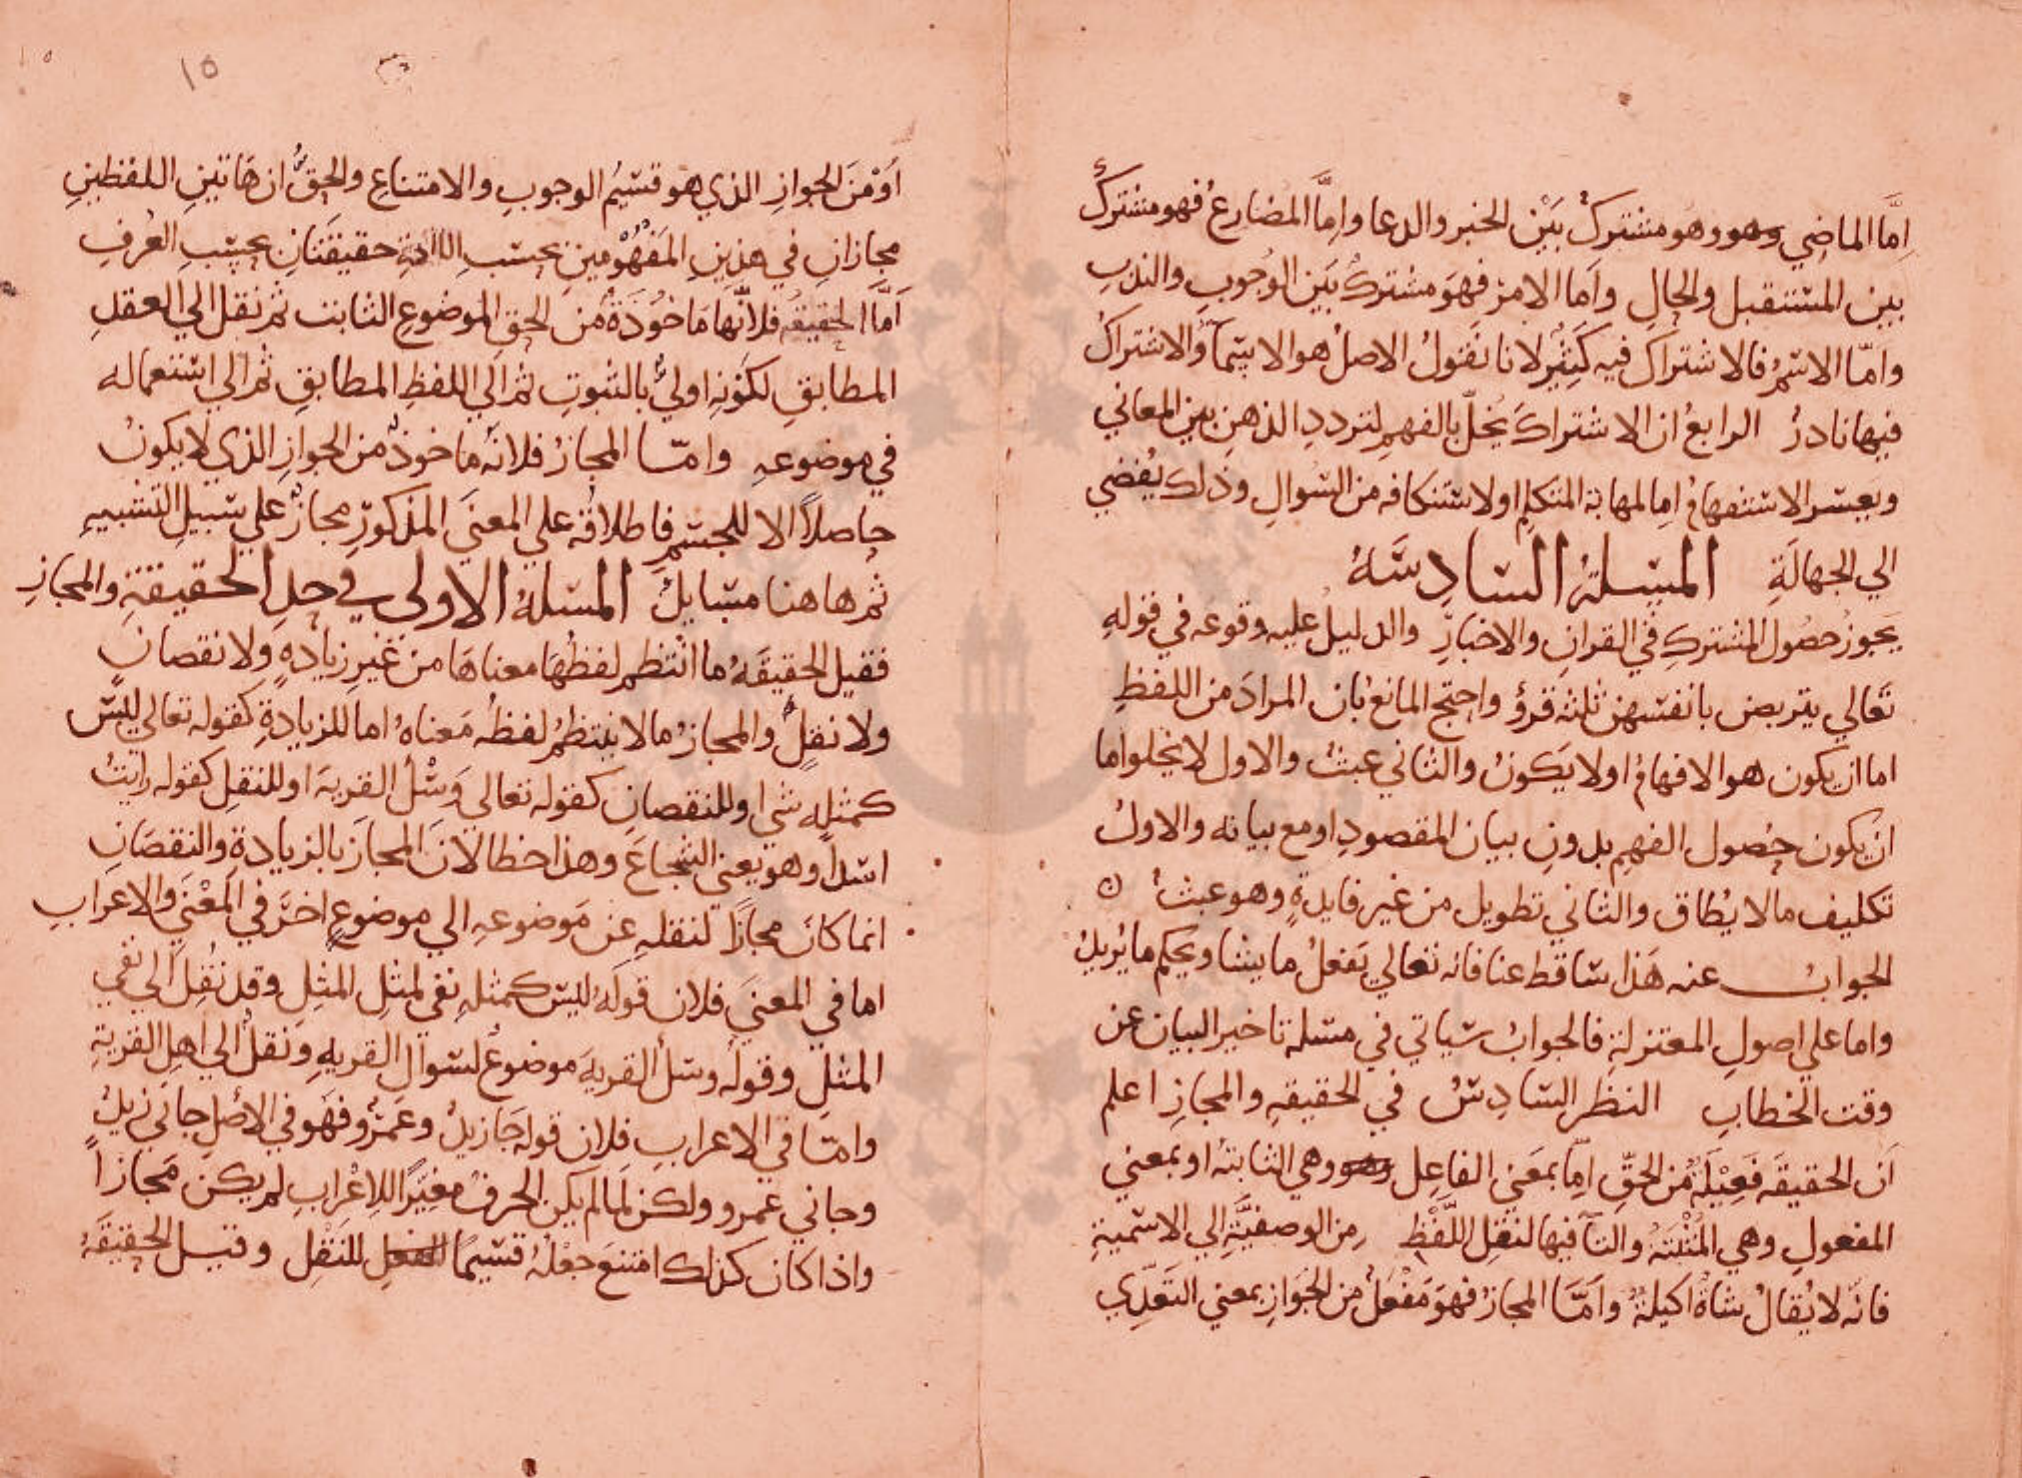 اِمَّا الماضي وهو وهو مشترك بَيْن الخبر والدعا واِمَّا المضارعُ فهو مشتركٌ
بين المستقبل والحالِ واَما الامرُ فهوَ مشتركٌ بَيَن الوُجوبِ والندبِ
واَمّا الاسْمُ فالاشتراك فيه كَثيرٌ لانا نقَولُ الاصلُ هو الاسمآ والاشتراكُ
فيها نادرٌ الرابعُ ان الاشتراكَ يُخلّ بالفهمِ لترددِ الذهنِ بين المعاني
ويعسر الاستفهامُ اِما لمهابة المتكلمِ او لاستنكافه من السُوالِ وذلك يُفضي
الي الجهالَةِ المسلةُ السادِسَهُ
يَجوزُ حصُول المشتركِ في القرانِ والاخبارِ والدليلُ عليه وقوعه في قوله
تَعَالي يتربصن بانفسهن ثلثه قروٍ واحتج المانعُ بان المرادَ من اللفظِ
اما ان يكون هو الافهامُ اولا يَكونُ والثاني عبثٌ والاول لا يخلوا ما
ان يكون حصُول الفهمِ بدونِ بيان المقصودِ او مع بيانه والاولُ
تكليف مالا يُطاق والثاني تطويل من غير فايدةٍ وهو عبثٌ ن
الجوابُ عنه هَذا ساقط عنا فانه تعالي يَفعلُ ما يشا ويحكم ما يُريدُ
واما علي اصولِ المعتزلةِ فالجوابُ سياتي في مسلة تاخير البيان عن
وقت الخطابِ النظر السادِسُ في الحقيقهِ والمجازِ اعلم
اَن الحقيقَه فَعِيلَةٌ مَن الحقِّ اِمّا بمعَني الفاعِل وهو وهي الثابتهُ او بمعني
المفعولِ وهي المُثْبَتَهُ والتآ فيها لنقلِ اللَّفْظِ مِن الوصفيَّةِ الي الاسميةِ
فانه لا يُقالُ شاةٌ اكيلةٌ واَمّا المجازُ فهوَ مَفْعَلٌ من الجَوازِ بمعني التَعَدِّي
١٥
اَوْ مَن الجوازِ الذي هو قسيمُ الوجوبِ والامتناعِ والحقُّ ان هَاتينِ اللفظينِ
مجازانِ في هذينِ المَفهُوْمينِ بحسَبِ حقيقتَانِ بحسَبِ العُرفِ
اَمَّا الحقيقهُ فلانَّها مَاخُوَذةٌ مَن الحقِ الموضوعِ الثابت ثم نقل الي العقدِ
المطابقِ لكوَنِه اوليَ بالثبوتِ ثم الَي اللفظِ المطابقِ ثم الي استعماله
في موضوعهِ وامّا المجازُ فلانَه ماخوذٌ من الجوازِ الذي لا يكونُ
حاصلاً الا للجسمِ فاطلاقُه علي المعنَي المذكورِ مجازٌ علي سَبيلِ التشبيهِ
ثم هاهنا مسَايلُ المسلهُ الاولى في حدِ الحقيقةِ والمجازِ
فقيل الحقيقَهُ ما انتظم لفظُهَا معناهَا من غَيرِ زيادهٍ وَلا نقصانٍ
ولا نقلٍ والمجازُ مالا ينتظمُ لفظُه مَعناهُ اما للزيادةِ كقوله تعالي ليسَ
كمثلِه شي او للنقصانِ كقوله تعالى وَسْلُ القريهَ او للنقلِ كقوله رايتُ
اسَداً وهو يعني الشجاعَ وهذا خطا لانَ المجازَ بالزيادةِ والنقصَانِ
انما كانَ مجازاً لنقلهِ عَن مَوضوعهِ الي موضوعٍ اخرَ في المَعْنَي والاعرابِ
اما في المعنيَ فلان قولَهُ ليسَ كمثلهِ نفي لمثلِ المثِلِ وقد نُقِلَ الي نفي
المثلِ وقولُه وسَل القريهَ موضوعٌ لسَوالِ القريهِ ونَقلُ الي اهلِ القريةِ
وامّا في الاعرابِ فلان قوله جَا زيدٌ وعَمرٌو فهوَ في الاصلِ جاني زيدٌ
وجاني عمرو ولكن لَما لم يكنِ الحرفُ مغيِّراً للاِعْرابِ لم يكن مَجازاً
واذا كان كذلك امتنعَ جعْلهُ قسيماً للنَقْلِ وقيل الحقيقَهُ